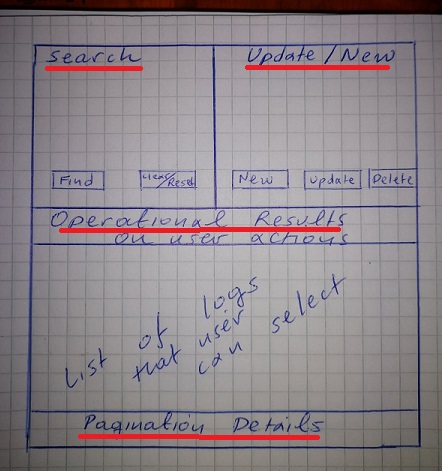 Search
Update/New
Find
Clear/Reset
New
Update
Delete
Operational Results
on user actions
List of logs
that user
can select
Pagination Details